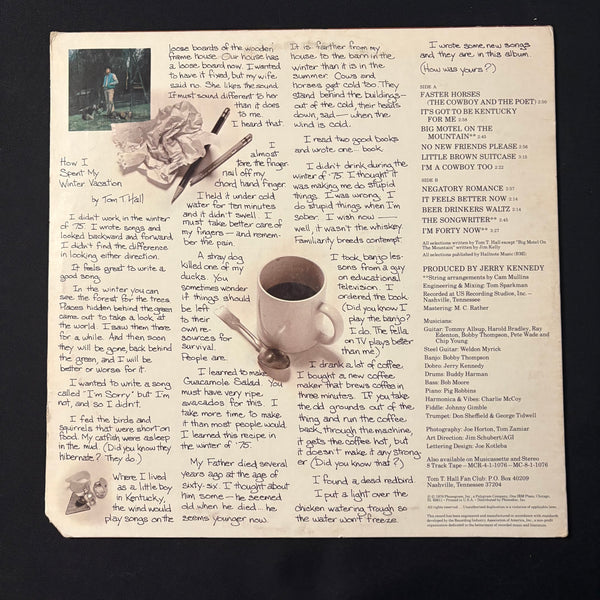 How I
Spent My
Winter Vacation
by Tom T. Hall
I didn't work in the winter
of '75. I wrote songs and
looked backward and forward.
I didn't find the difference
in looking either direction.
It feels great to write a
good song.
In the winter you can
see the forest for the trees.
Places hidden behind the green
came out to take a look at
the world. I saw them there
for a while. And then soon
they will be gone, back behind
the green, and I will be
better or worse for it.
I wanted to write a song
called "I'm Sorry" but I'm
not, and so I didn't.
I fed the birds and
squirrels that were short on
food. My catfish were asleep
in the mud. (Did you know they
hibernate? They do.)
Where I lived
as a little boy
in Kentucky,
the wind would
play songs on the
loose boards of the wooden
frame house. Our house has
a loose board now. I wanted
to have it fixed, but my wife
said no. She likes the sound.
It must sound different to her
than it does
to me.
I heard that.
I
almost
tore the finger
nail off my
chord hand finger.
I held it under cold
water for ten minutes
and it didn't swell. I
must take better care of
my fingers — and remem-
ber the pain.
A stray dog
killed one of my
ducks. You
sometimes wonder
if things should
be left
to their
own re-
sources for
survival.
People are.
I learned to make
Guacamole Salad. You
must have very ripe
avacados for this. I
take more time, to make
it than most people would.
I learned this recipe in
the winter of '75.
My Father died several
years ago at the age of
sixty-six. I thought about
him some — he seemed
old when he died... he
seems younger now.
It is farther from my
house to the barn in the
winter than it is in the
summer. Cows and
horses get cold too. They
stand behind the buildings —
out of the cold, their heads
down, sad — when the
wind is cold.
I read two good books
and wrote one... book.
I didn't drink during the
winter of '75. I thought it
was making me do stupid
things. I was wrong. I
do stupid things when I'm
sober. I wish now —
well, it wasn't the whiskey.
Familiarity breeds contempt.
I took banjo les-
sons from a guy
on educational
television. I
ordered the book.
(Did you know I
play the banjo?
I do. The fella
on TV plays better
than me.)
I drank a lot of coffee.
I bought a new coffee
maker that brews coffee in
three minutes. If you take
the old grounds out of the
thing and run the coffee
back, through the machine,
it gets the coffee hot, but
it doesn't make it any strong-
er. (Did you know that?)
I found a dead redbird.
I put a light over the
chicken watering trough so
the water won't freeze.
I wrote some new songs
and they are in this album.
(How was yours?)
SIDE A
FASTER HORSES
(THE COWBOY AND THE POET)
IT'S GOT TO BE KENTUCKY
FOR ME
BIG MOTEL ON THE
MOUNTAIN** 2:45
NO NEW FRIENDS PLEASE 2:56
LITTLE BROWN SUITCASE 3:13
I'M A COWBOY TOO 2:22
SIDE B
NEGATORY ROMANCE 2:37
IT FEELS BETTER NOW 2:14
BEER DRINKERS WALTZ 2:14
THE SONGWRITER** 2:45
I'M FORTY NOW** 3:27
All selections written by Tom T. Hall except "Big Motel On
The Mountain" written by Jim Kelly
All selections published by Hallnote Music (BMI)
PRODUCED BY JERRY KENNEDY
**String arrangements by Cam Mullins
Engineering & Mixing: Tom Sparkman
Recorded at US Recording Studios, Inc. —
Nashville, Tennessee
Mastering: M. C. Rather
Musicians:
Guitar: Tommy Allsup, Harold Bradley, Ray
Edenton, Bobby Thompson, Pete Wade and
Chip Young
Steel Guitar: Weldon Myrick
Banjo: Bobby Thompson
Dobro: Jerry Kennedy
Drums: Buddy Harman
Bass: Bob Moore
Piano: Pig Robbins
Harmonica & Vibes: Charlie McCoy
Fiddle: Johnny Gimble
Trumpet: Don Sheffield & George Tidwell
Photography: Joe Horton, Tom Zamiar
Art Direction: Jim Schubert/AGI
Lettering Design: Joe Kotleba
Also available on Musicassette and Stereo
8 Track Tape — MCR-4-1-1076 — MC-8-1-1076
Tom T. Hall Fan Club: P.O. Box 40209
Nashville, Tennessee 37204